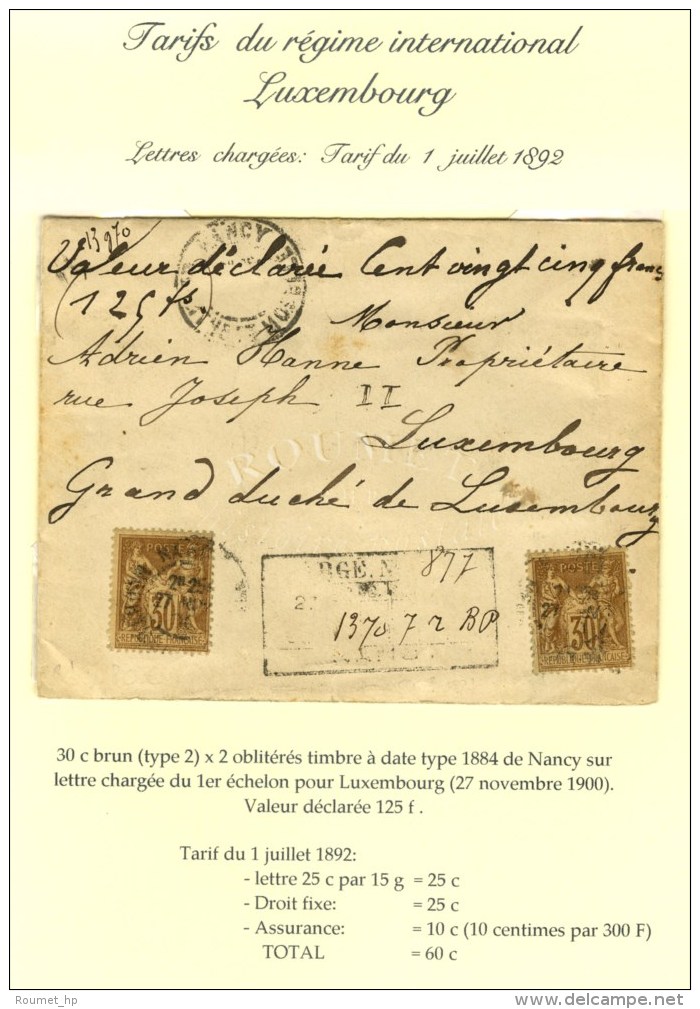 Tarifs du régime international
Luxembourg
Lettres chargées: Tarif du 1 juillet 1892
13970
NANCY
Valeur déclarée Cent vingt cinq francs
(125 fs)
Monsieur
Adrien Hanne Propriétaire
rue Joseph II
Luxembourg
Grand duché de Luxembourg
ROUMET
POSTE
30
REPUBLIQUE FRANCAISE
877
1370 7 2 BP
POSTE
30
REPUBLIQUE FRANCAISE
30 c brun (type 2) x 2 oblitérés timbre à date type 1884 de Nancy sur
lettre chargée du 1er échelon pour Luxembourg (27 novembre 1900).
Valeur déclarée 125 f .
Tarif du 1 juillet 1892:
- lettre 25 c par 15 g = 25 c
- Droit fixe: = 25 c
- Assurance: = 10 c (10 centimes par 300 F)
TOTAL = 60 c
Roumet_hp
delcampe.net